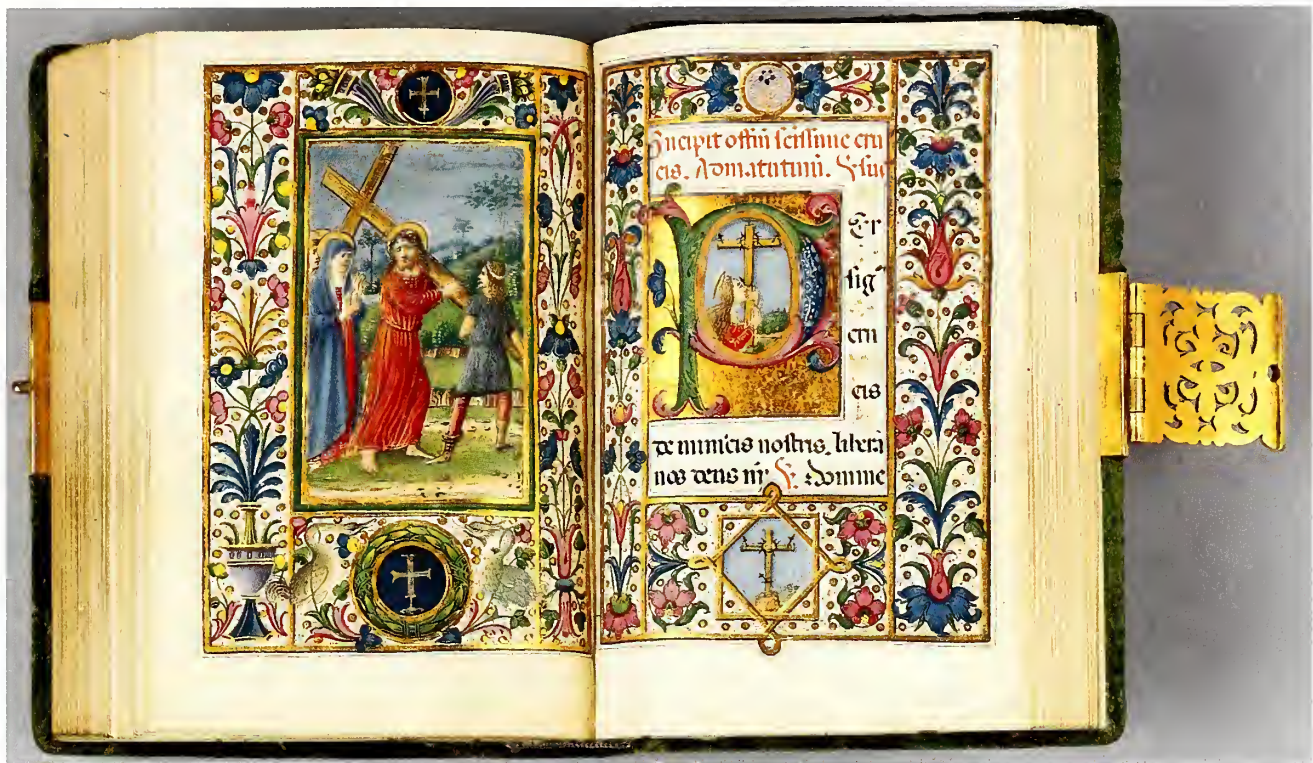 Incipit offiũ sctissime cru
cis. Ad matutinũ. ℣ sus
PEr
sig
cru
cis
de inimicis nostris. libera
nos deus nr̃ ℣. Domine